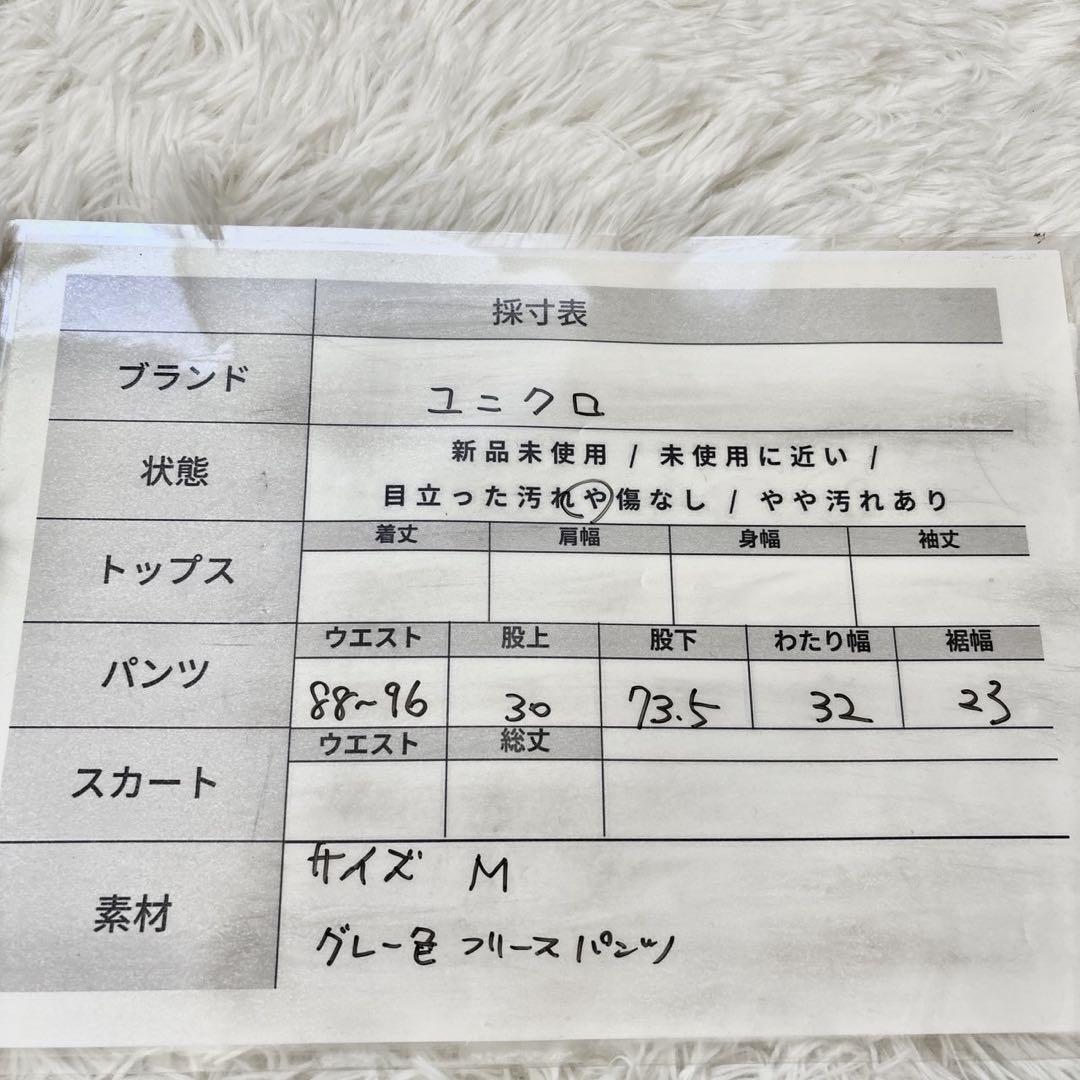 採寸表
ブランド
ユニクロ
状態
新品未使用 / 未使用に近い /
目立った汚れや傷なし / やや汚れあり
トップス
着丈 肩幅 身幅 袖丈
パンツ
ウエスト 股上 股下 わたり幅 裾幅
88~96 30 73.5 32 23
スカート
ウエスト 総丈
素材
サイズ M
グレー色 フリースパンツ